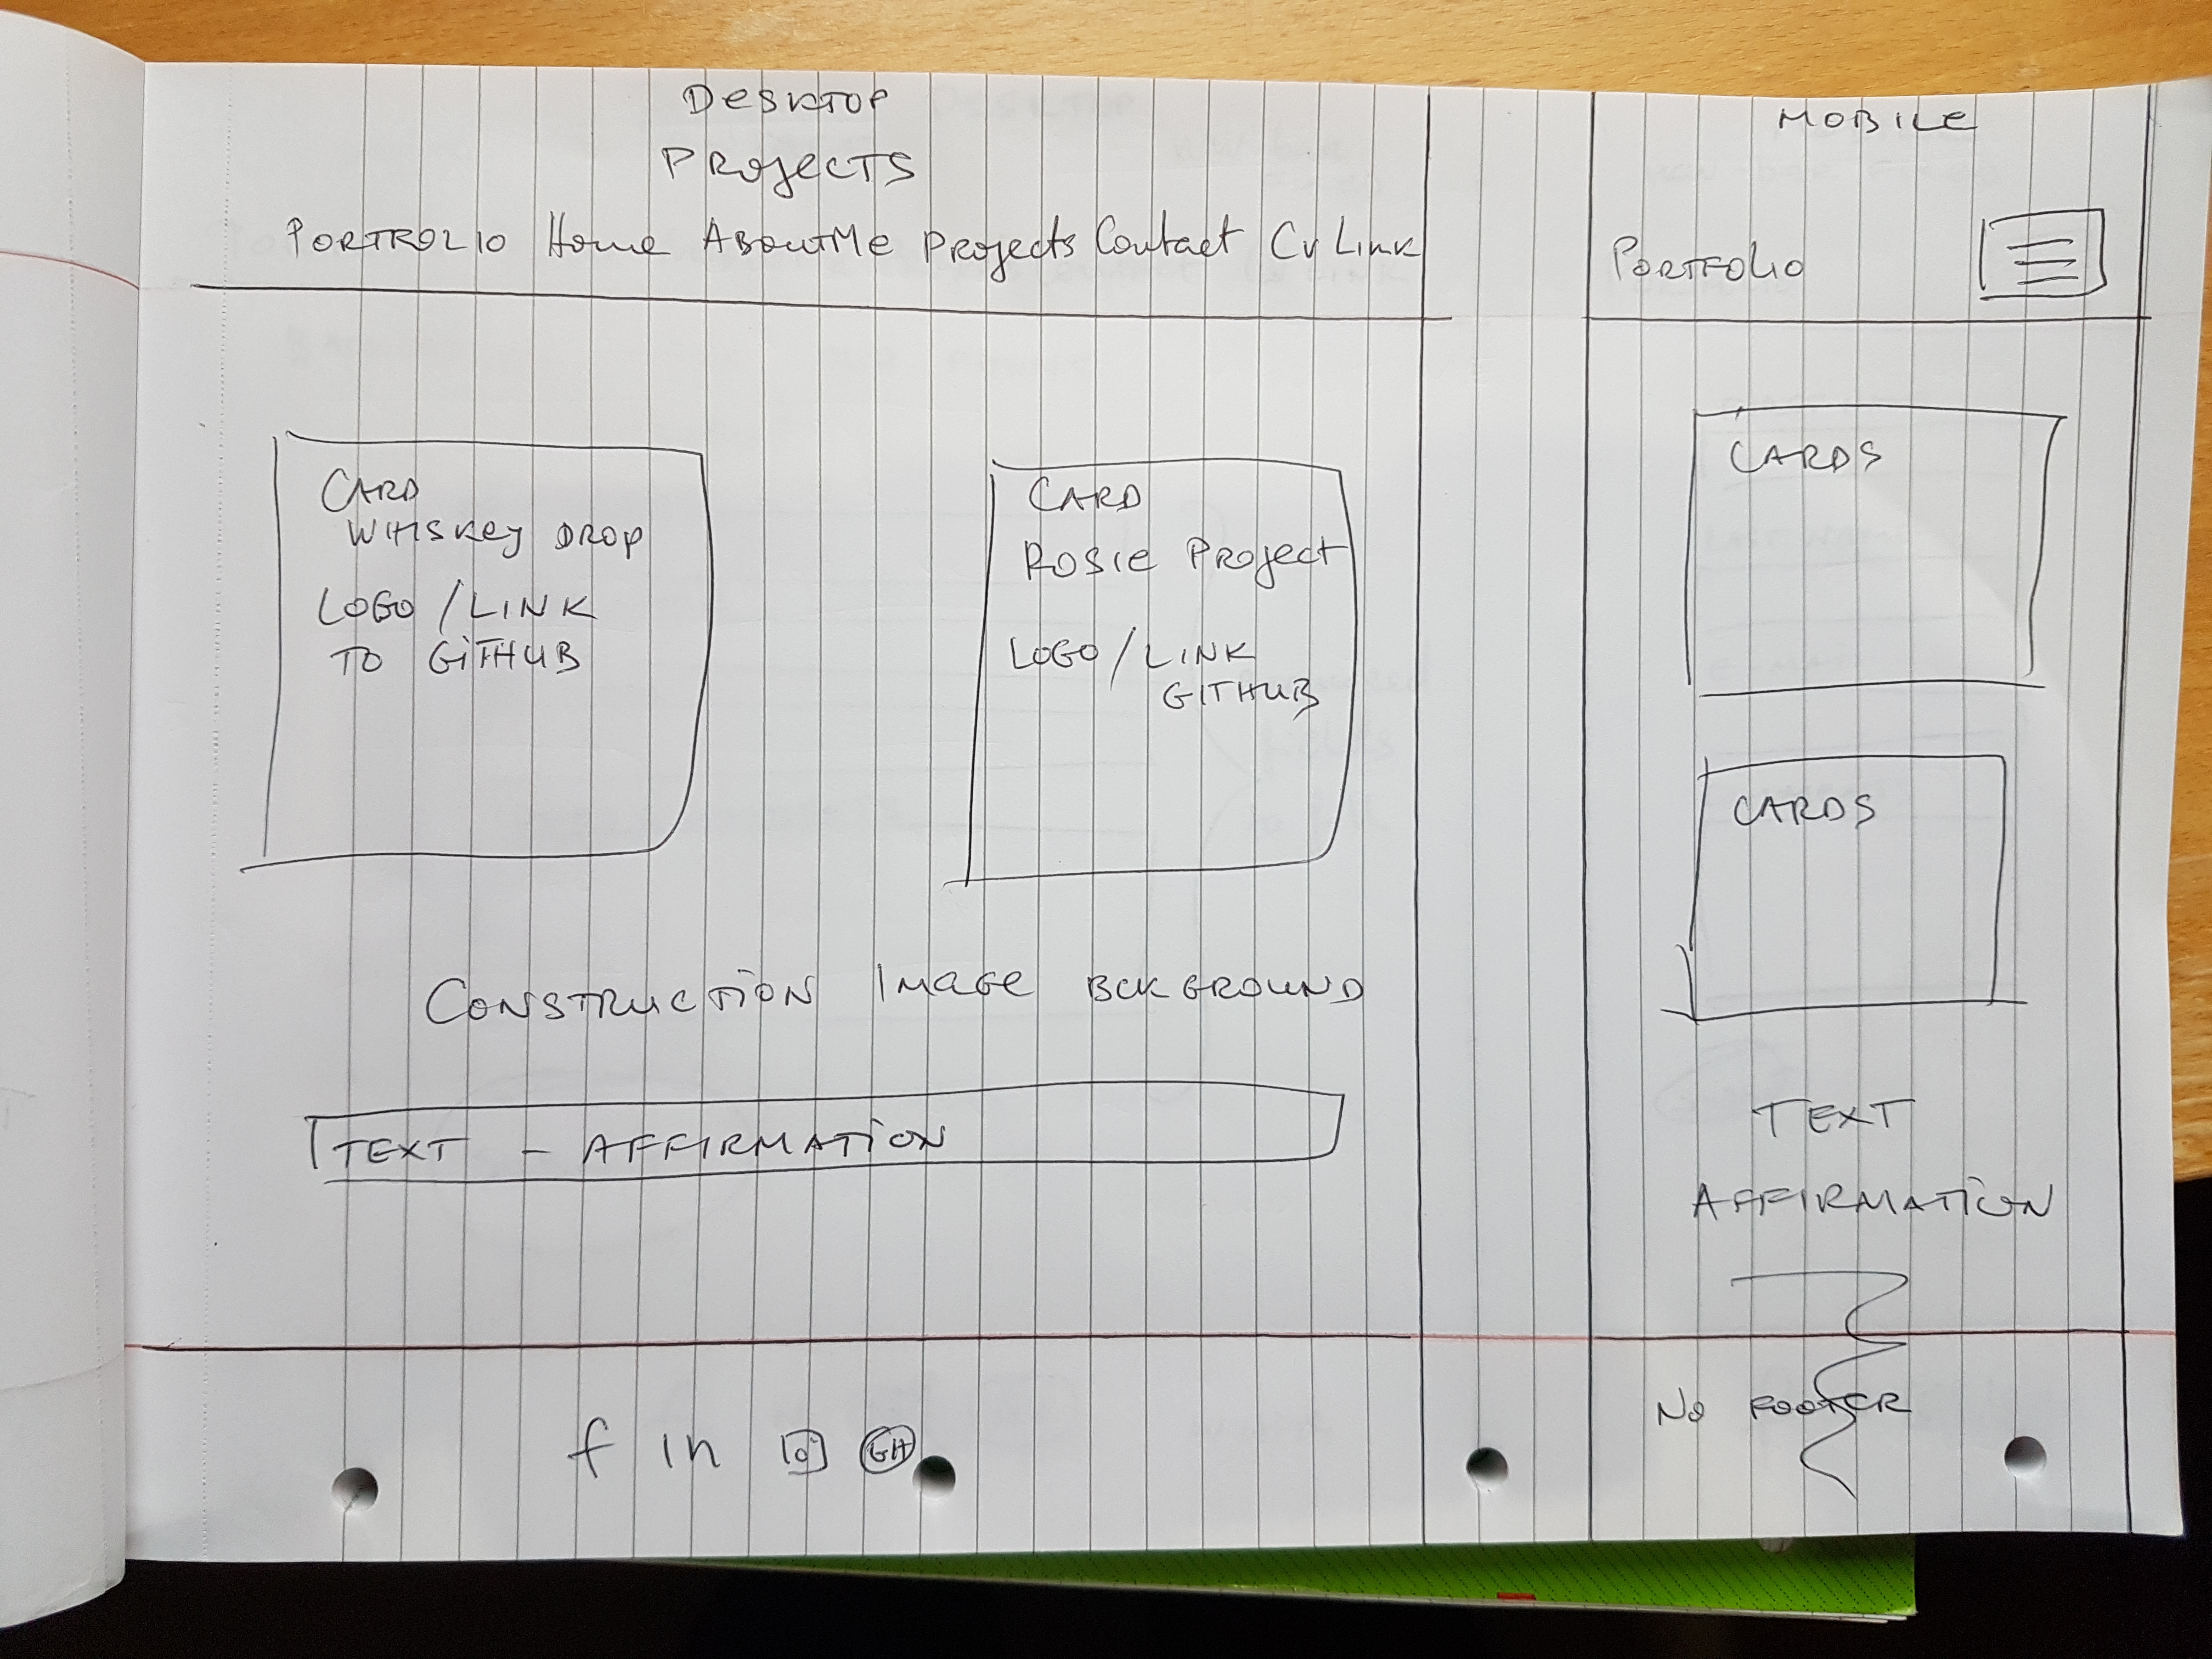 DESKTOP
PROJECTS
PORTROLIO Home ABOUTMe PROJECTS Contact CV LINK
CARD
WHISKEY DROP
LOGO / LINK
TO GITHUB
CARD
ROSIE PROJECT
LOGO / LINK
GITHUB
CONSTRUCTION IMAGE BCKGROUND
TEXT - AFFIRMATION
f in GH
MOBILE
PORTFOLIO
CARDS
CARDS
TEXT
AFFIRMATION
NO FOOTER